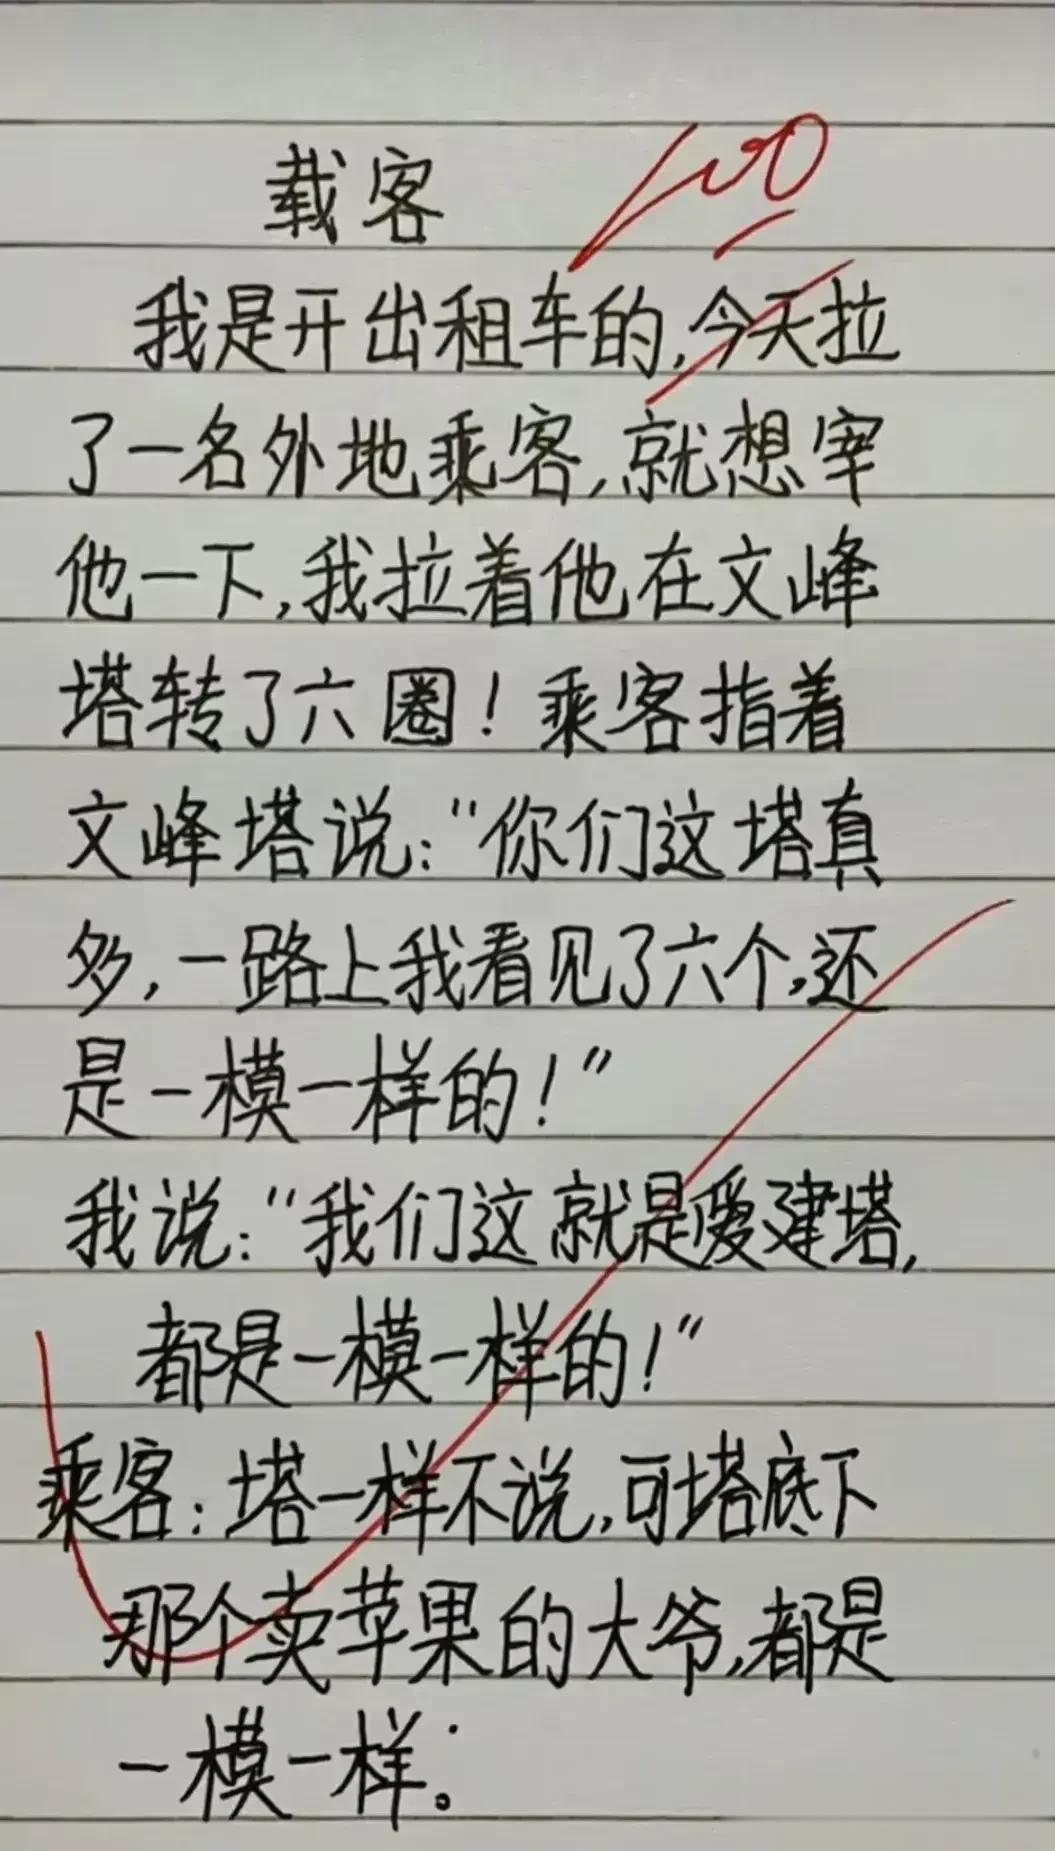 载客
100
我是开出租车的,今天拉
了一名外地乘客,就想宰
他一下,我拉着他在文峰
塔转了六圈!乘客指着
文峰塔说:“你们这塔真
多,一路上我看见了六个,还
是一模一样的!”
我说:“我们这就是爱建塔,
都是一模一样的!”
乘客:塔一样不说,可塔底下
那个卖苹果的大爷,都是
一模一样。